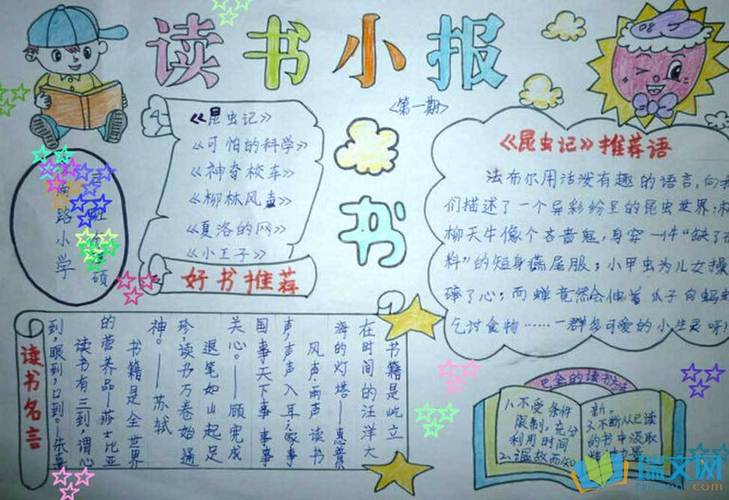 读书小报
<第一期>
《昆虫记》
《可怕的科学》
《神奇校车》
《柳林风声》
《夏洛的网》
《小王子》
好书推荐
书
路小学
硕
《昆虫记》推荐语
法布尔用活泼有趣的语言,向我
们描述了一个异彩纷呈的昆虫世界:
柳天牛像个吝啬鬼,身穿一件“缺了
料”的短身燕尾服;小甲虫为儿女操
碎了心;而蝉竟然会伸着爪子向蚂蚁
乞讨食物……一群多可爱的小生灵呀!
读书名言
书籍是屹立
在时间的汪洋大
海的灯塔——惠普
风声,雨声,读书
声,声声入耳,家事
国事天下事事事
关心。——顾宪成
退笔如山起足
珍,读书万卷始通
神。——苏轼
书籍是全世界
的营养品——莎士比亚
读书有三到,谓心
到,眼到,口到。——朱熹
巴金的读书方法
1、不受条件
限制,充分
利用时间
2、温故而知
新。
3、不断从已读
的书中汲取
瑞文网